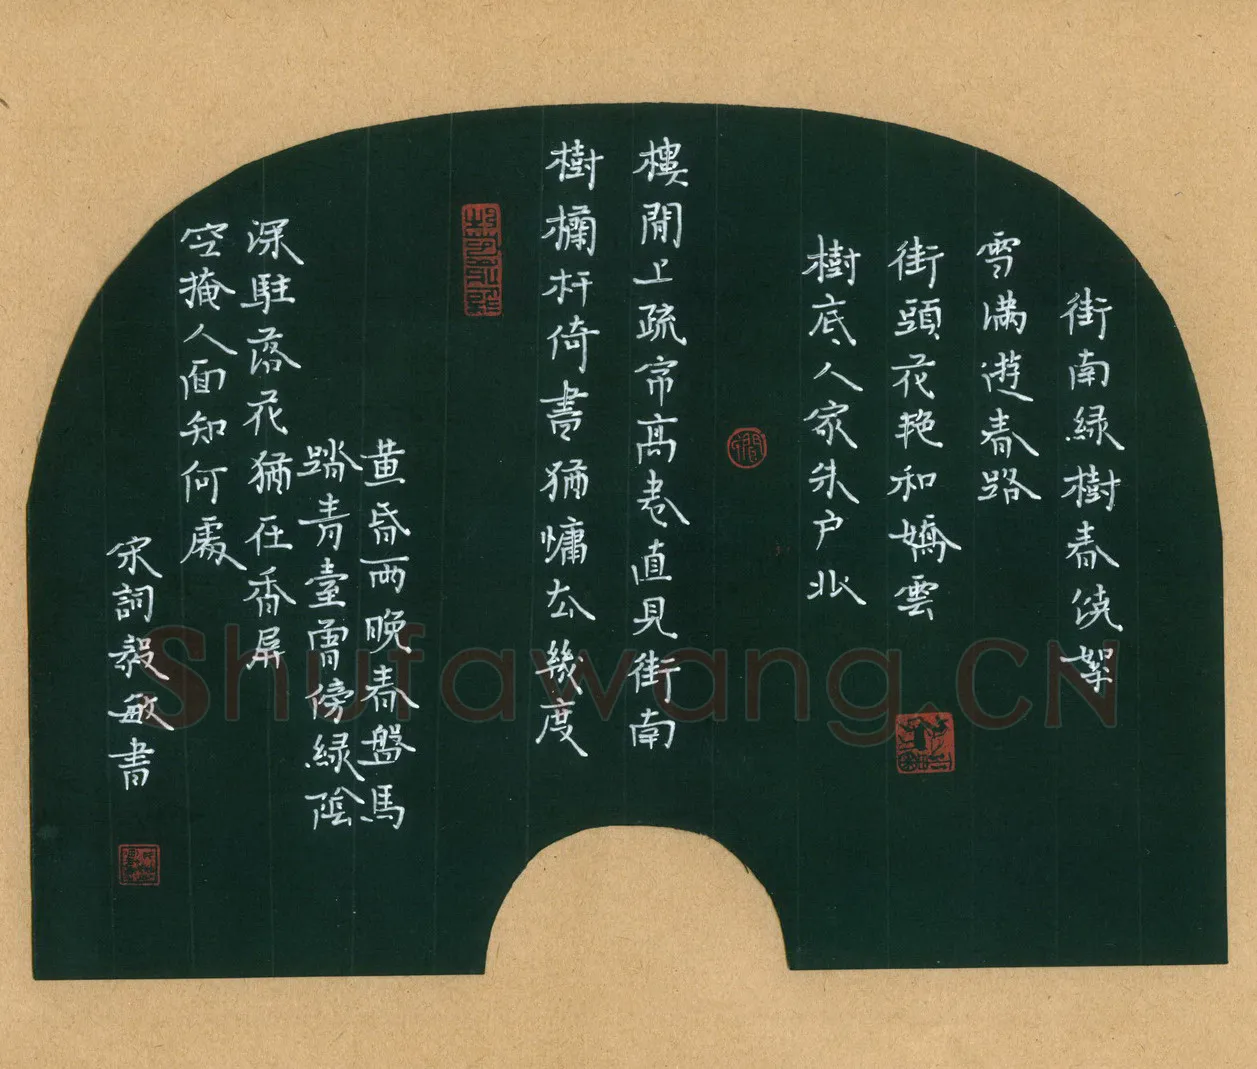 街南緑樹春饒絮
雪滿遊春路
街頭花艷和嬌雲
樹底人家朱户北
樓閒上疏帘高卷直見街南
樹欄杆倚盡猶慵去幾度
黄昏雨晚春盤馬
踏青臺曾傍緑陰
深駐落花猶在香屏
空掩人面知何處
宋詞毅敏書
Shufawang.CN